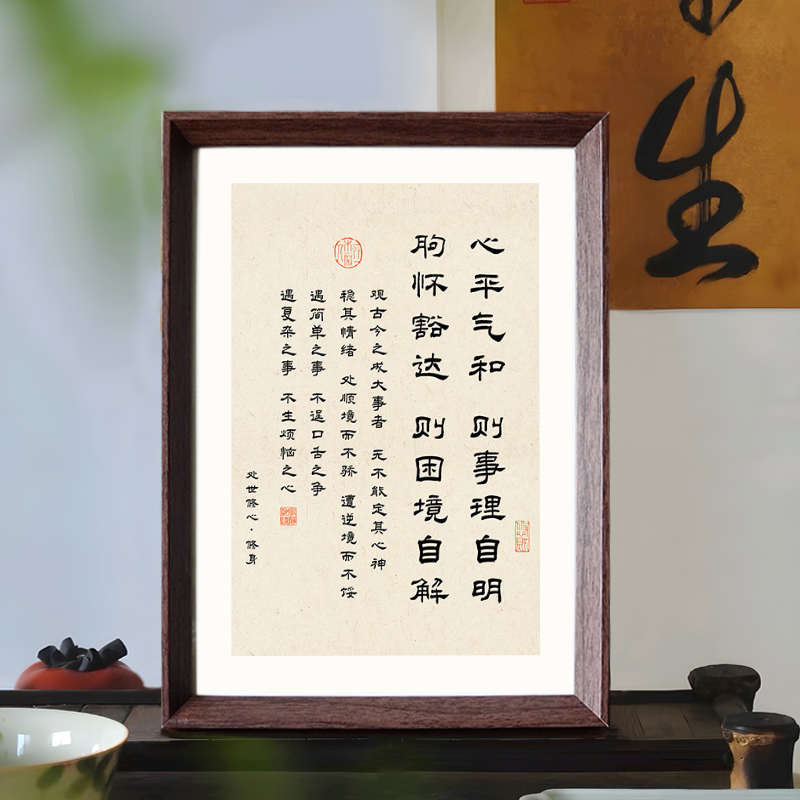 生
心平气和 则事理自明
胸怀豁达 则困境自解
观古今之成大事者 无不能定其心神
稳其情绪 处顺境而不骄 遭逆境而不馁
遇简单之事 不逞口舌之争
遇复杂之事 不生烦恼之心
处世修心·修身